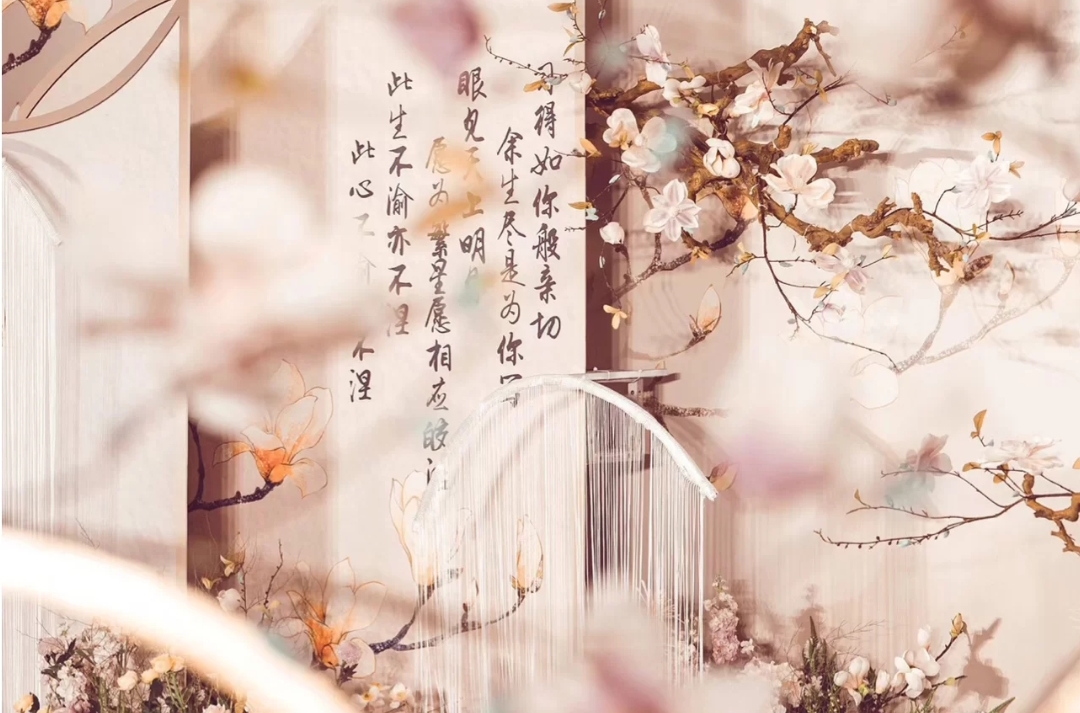 得如你般亲切
余生尽是为你
眼见天上明
愿为繁星愿相应皎
此生不渝亦不涅
此心 不涅